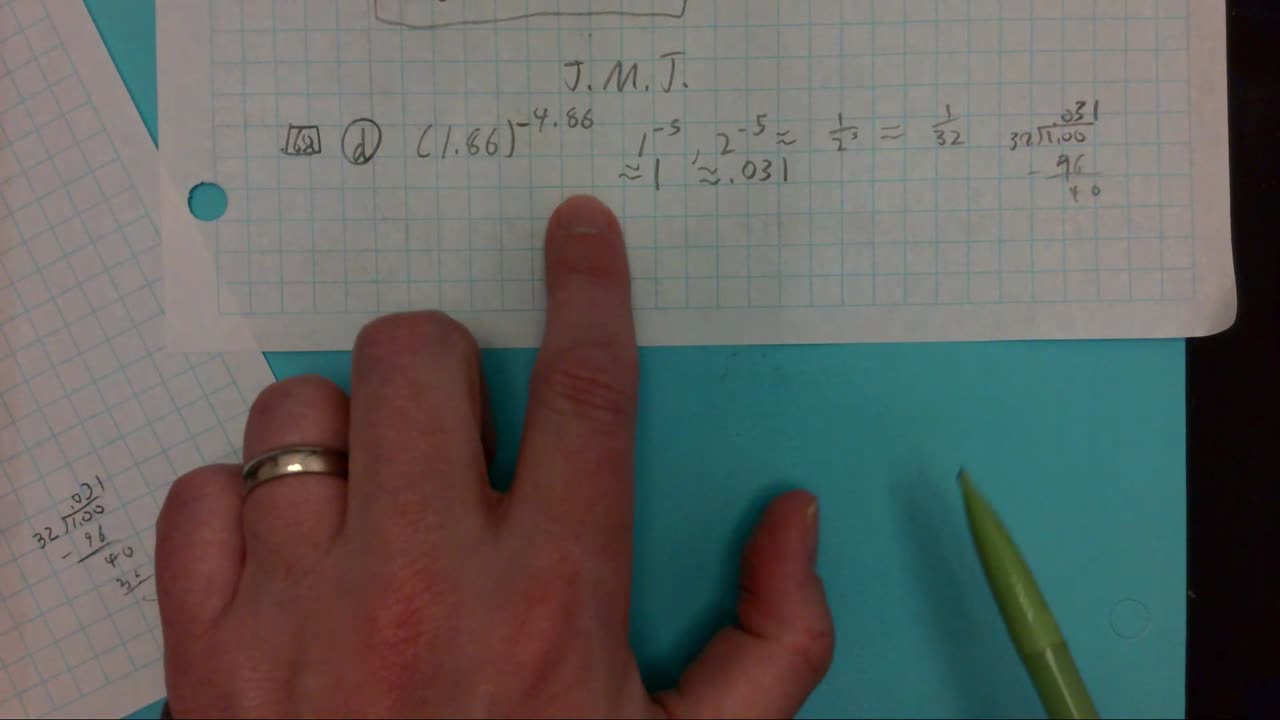 J.M.J.
68 d (1.86)^-4.86 1^-5, 2^-5 ≈ 1/2^5 = 1/32
≈1 ≈.031
.031
32)1.00
- 96
40
.031
32)1.00
- 96
40